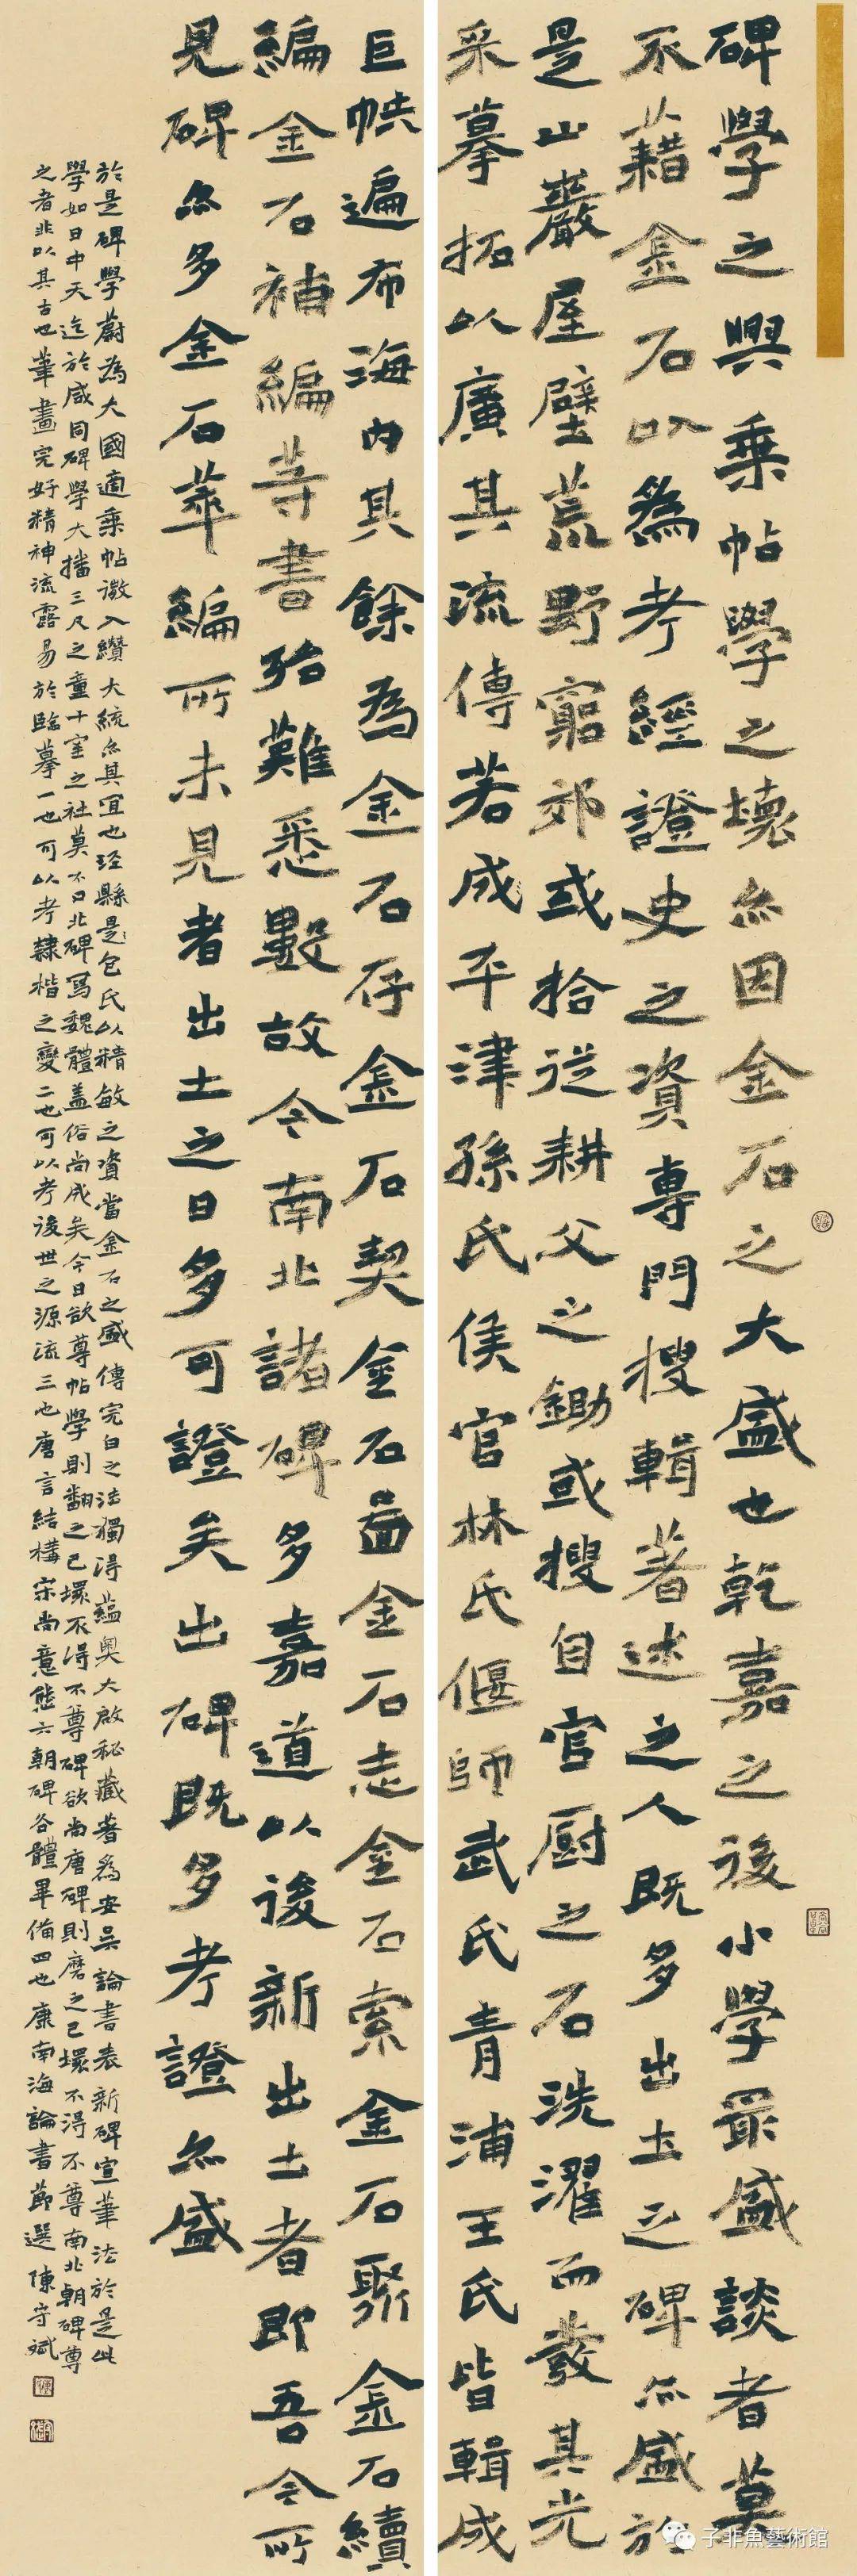 碑學之興乘帖學之壞亦因金石之大盛也乾嘉之後小學最盛談者莫
不藉金石以為考經證史之資專門搜輯著述之人既多出土之碑亦盛於
是山巖屋壁荒野窮郊或拾從耕父之鋤或搜自官厨之石洗濯而發其光
采摹拓以廣其流傳若成平津孫氏侯官林氏偃師武氏青浦王氏皆輯成
巨帙遍布海內其餘為金石存金石契金石圖金石志金石索金石聚金石續
編金石補編等書殆難悉數故今南北諸碑多嘉道以後新出土者即吾今所
見碑亦多金石萃編所未見者出土之日多可證矣出碑既多考證亦盛
於是碑學蔚為大國適乘帖微入纘大統亦其宜也涇縣是包氏以精敏之資當金石之盛傳完白之法獨得蘊奧大啟秘藏著為安吳論書表新碑宣筆法於是此
學如日中天迄於咸同碑學大播三尺之童十室之社莫不口北碑寫魏體蓋俗尚成矣今日欲尊帖學則翻之已壞不得不尊碑欲尚唐碑則磨之已壞不得不尊南北朝碑尊
之者非以其古也筆畫完好精神流露易於臨摹一也可以考隸楷之變二也可以考後世之源流三也唐言結構宋尚意態六朝碑各體畢備四也康南海論書節選陳守斌
子非魚藝術館